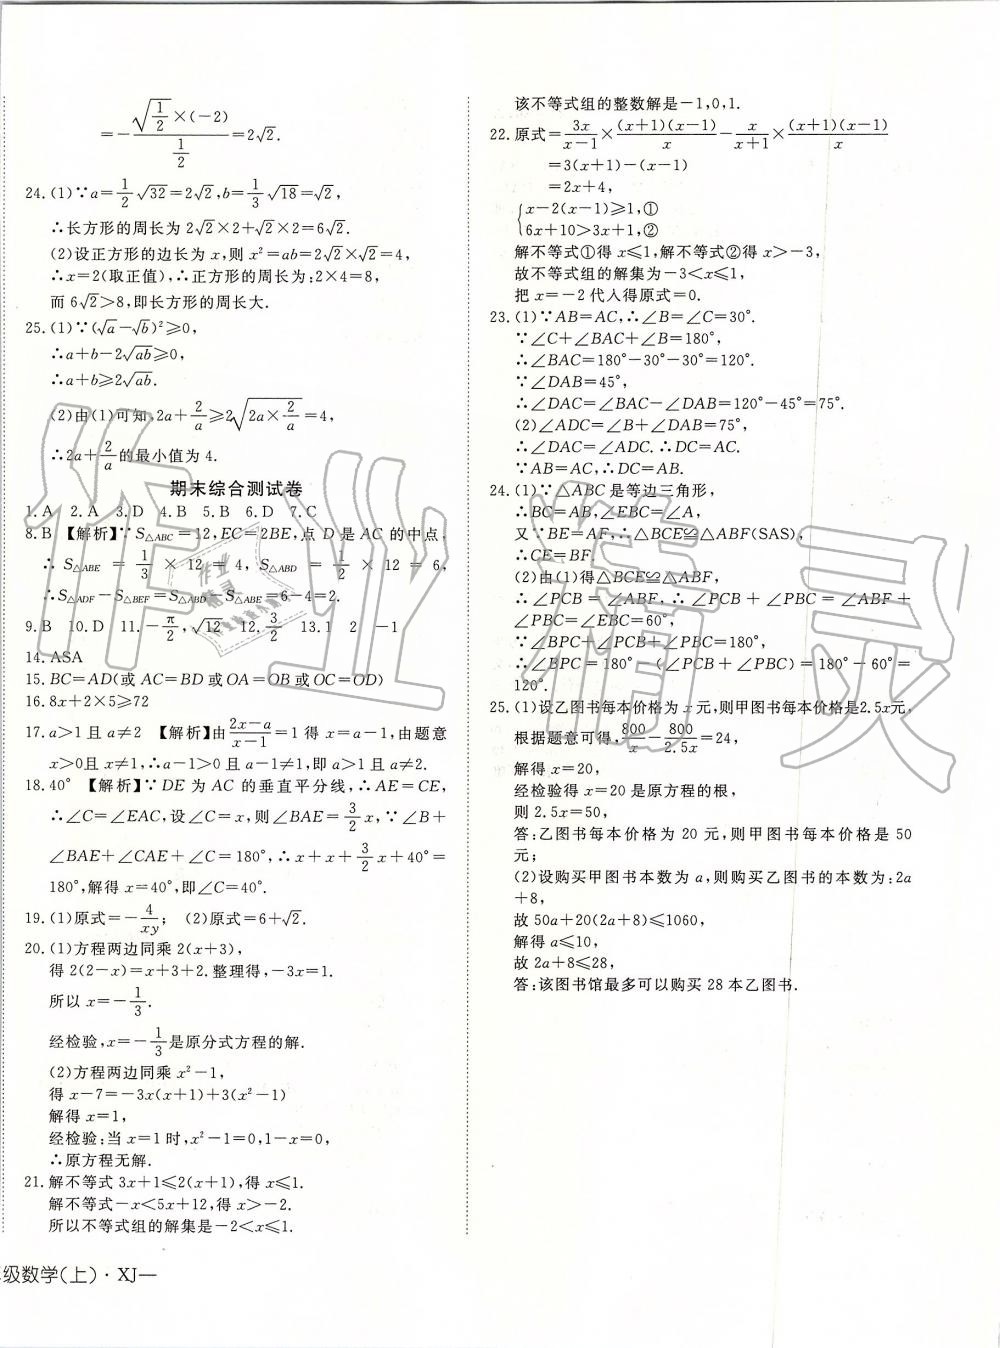 =-\frac{\sqrt{\frac{1}{2}}×(-2)}{\frac{1}{2}}=2√2.
24.(1)∵a=\frac{1}{2}√32=2√2,b=\frac{1}{3}√18=√2,
∴长方形的周长为2√2×2+√2×2=6√2.
(2)设正方形的边长为x,则x²=ab=2√2×√2=4,
∴x=2(取正值),∴正方形的周长为:2×4=8,
而6√2>8,即长方形的周长大.
25.(1)∵(√a-√b)²≥0,
∴a+b-2√ab≥0,
∴a+b≥2√ab.
(2)由(1)可知,2a+\frac{2}{a}≥2\sqrt{2a×\frac{2}{a}}=4,
∴2a+\frac{2}{a}的最小值为4.
期末综合测试卷
1.A 2.A 3.D 4.B 5.B 6.D 7.C
8.B 【解析】∵S△ABC=12,EC=2BE,点D是AC的中点,
∴S△ABE=\frac{1}{3}×12=4,S△ABD=\frac{1}{2}×12=6,
∴S△ADF-S△BEF=S△ABD-S△ABE=6-4=2.
9.B 10.D 11.-\frac{π}{2},√12 12.\frac{3}{2} 13.1 2 -1
14.ASA
15.BC=AD(或AC=BD或OA=OB或OC=OD)
16.8x+2×5≥72
17.a>1且a≠2 【解析】由\frac{2x-a}{x-1}=1得x=a-1,由题意
x>0且x≠1,∴a-1>0且a-1≠1,即a>1且a≠2.
18.40° 【解析】∵DE为AC的垂直平分线,∴AE=CE,
∴∠C=∠EAC,设∠C=x,则∠BAE=\frac{3}{2}x,∵∠B+
∠BAE+∠CAE+∠C=180°,∴x+x+\frac{3}{2}x+40°=
180°,解得x=40°,即∠C=40°.
19.(1)原式=-\frac{4}{xy}; (2)原式=6+√2.
20.(1)方程两边同乘2(x+3),
得2(2-x)=x+3+2.整理得,-3x=1.
所以x=-\frac{1}{3}.
经检验,x=-\frac{1}{3}是原分式方程的解.
(2)方程两边同乘x²-1,
得x-7=-3x(x+1)+3(x²-1)
解得x=1,
经检验:当x=1时,x²-1=0,1-x=0,
∴原方程无解.
21.解不等式3x+1≤2(x+1),得x≤1.
解不等式-x<5x+12,得x>-2.
所以不等式组的解集是-2<x≤1.
级数学(上)·XJ—
该不等式组的整数解是-1,0,1.
22.原式=\frac{3x}{x-1}×\frac{(x+1)(x-1)}{x}-\frac{x}{x+1}×\frac{(x+1)(x-1)}{x}
=3(x+1)-(x-1)
=2x+4,
{x-2(x-1)≥1,①
6x+10>3x+1,②
解不等式①得x≤1,解不等式②得x>-3,
故不等式组的解集为-3<x≤1,
把x=-2代入得原式=0.
23.(1)∵AB=AC,∴∠B=∠C=30°.
∵∠C+∠BAC+∠B=180°,
∴∠BAC=180°-30°-30°=120°.
∵∠DAB=45°,
∴∠DAC=∠BAC-∠DAB=120°-45°=75°.
(2)∠ADC=∠B+∠DAB=75°,
∴∠DAC=∠ADC.∴DC=AC.
∵AB=AC,∴DC=AB.
24.(1)∵△ABC是等边三角形,
∴BC=AB,∠EBC=∠A,
又∵BE=AF,∴△BCE≌△ABF(SAS),
∴CE=BF.
(2)由(1)得△BCE≌△ABF,
∴∠PCB=∠ABF,∴∠PCB+∠PBC=∠ABF+
∠PBC=∠EBC=60°,
∵∠BPC+∠PCB+∠PBC=180°,
∴∠BPC=180°-(∠PCB+∠PBC)=180°-60°=
120°.
25.(1)设乙图书每本价格为x元,则甲图书每本价格是2.5x元,
根据题意可得,\frac{800}{x}-\frac{800}{2.5x}=24,
解得x=20,
经检验得x=20是原方程的根,
则2.5x=50,
答:乙图书每本价格为20元,则甲图书每本价格是50
元;
(2)设购买甲图书本数为a,则购买乙图书的本数为:2a
+8,
故50a+20(2a+8)≤1060,
解得a≤10,
故2a+8≤28,
答:该图书馆最多可以购买28本乙图书.
作业精灵